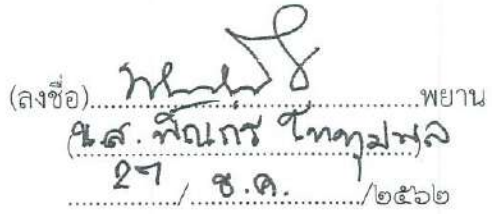 (ลงชื่อ)..........................................พยาน
(น.ส. พิณกร โททุมพล)
27 / ธ.ค. /๒๕๖๒